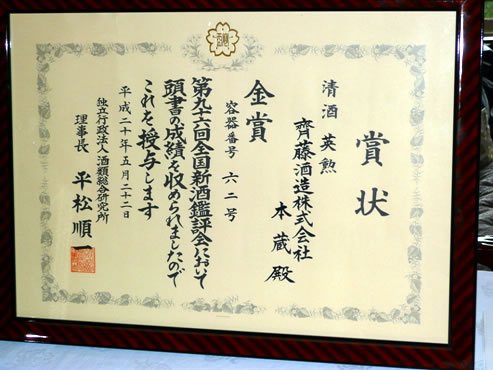 賞状
清酒 英勲
齊藤酒造株式会社
本蔵 殿
金賞
容器番号 六二号
第九十六回全国新酒鑑評会において
頭書の成績を収められましたので
これを授与します
平成二十年五月二十二日
独立行政法人酒類総合研究所
理事長 平松順一